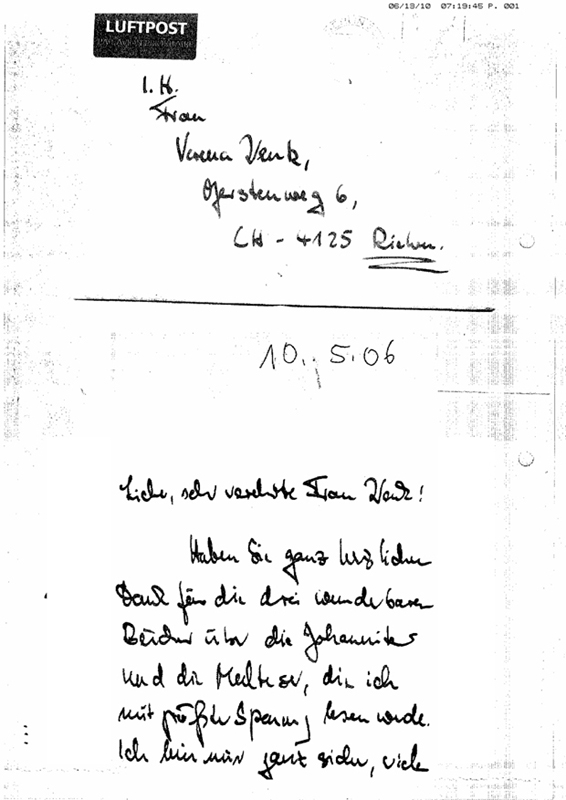 06/13/10 07:19:45 P. 001
LUFTPOST
I. H.
Frau
Verena Wenk,
Gerstenweg 6,
CH - 4125 Riehen.
10. 5. 06
Liebe, sehr verehrte Frau Wenk!
Haben Sie ganz herzlichen
Dank für die drei wunderbaren
Bücher über die Johanniter
und die Malteser, die ich
mit größter Spannung lesen werde.
Ich bin mir ganz sicher, viele